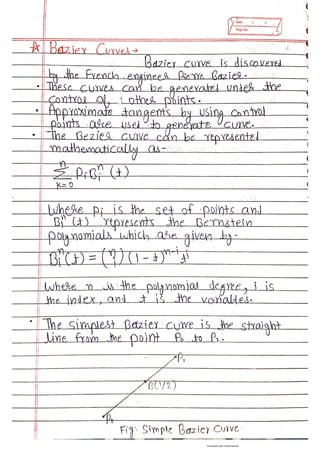 Date / /
Page No.
☆ Bazier Curves →
Bazier curve is discovered
by the French engineer Pierre Bazier.
• These curves can be generated under the
control of other points.
• Approximate tangents by using control
points are used to generate curve.
• The Bezier curve can be represented
mathematically as-
n
Σ PᵢBᵢⁿ (t)
k=0
where pᵢ is the set of points and
Bᵢⁿ (t) represents the Bernstein
polynomials which are given by-
Bᵢⁿ(t) = (ⁿᵢ) (1 - t)ⁿ⁻ⁱ tⁱ
where n is the polynomial degree, i is
the index, and t is the variables.
• The simplest Bazier curve is the straight
line from the point P₀ to P₁.
P₁
B(1/2)
P₀
Fig: Simple Bazier Curve
Scanned with CamScanner